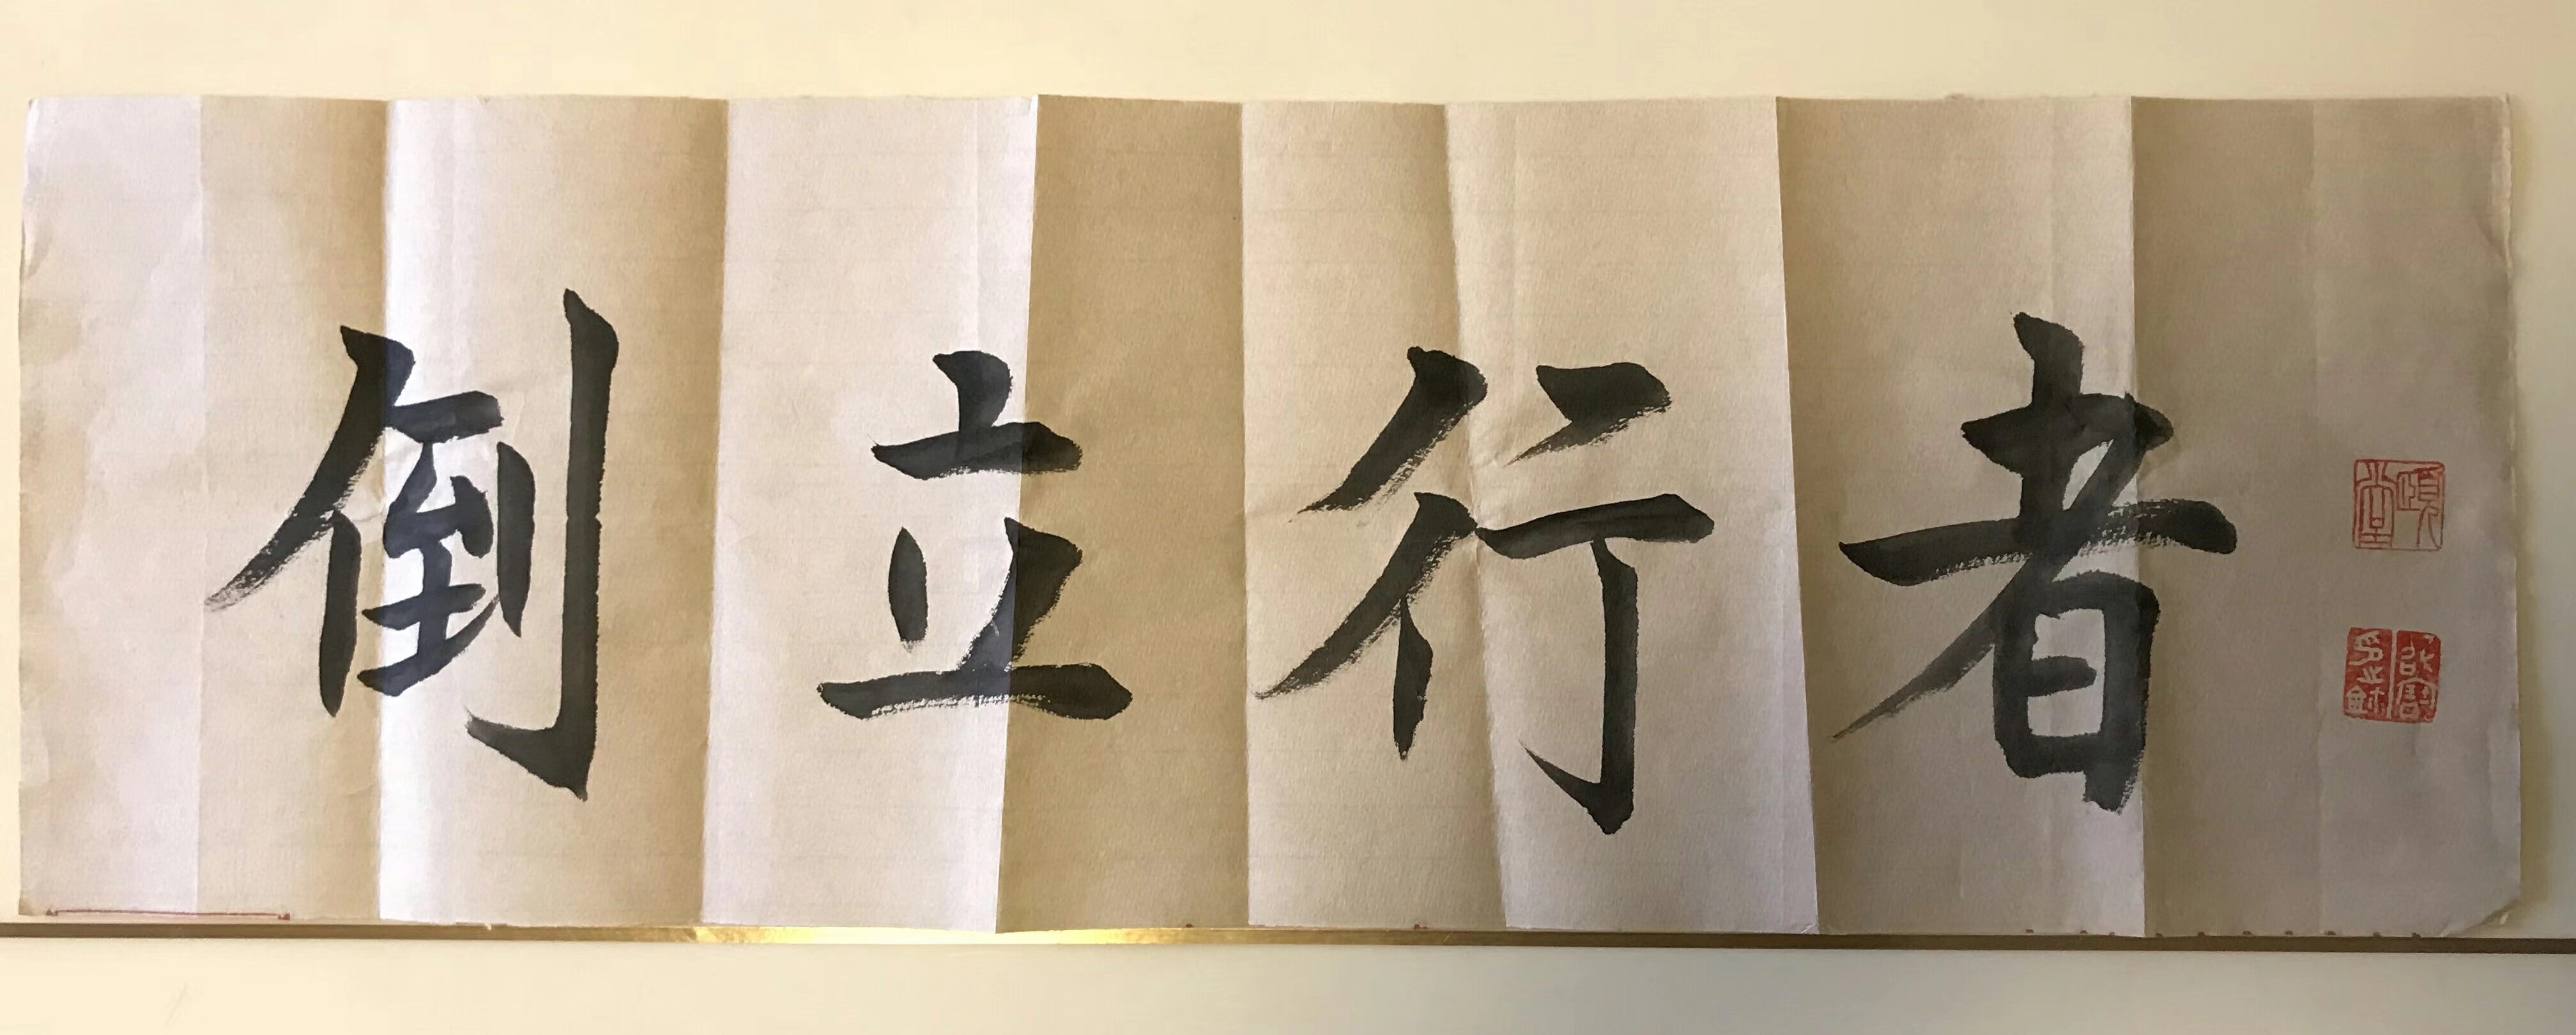 倒立行者